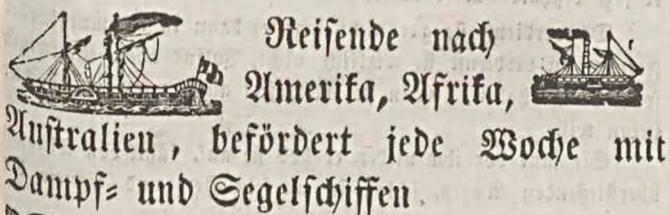 Reisende nach
Amerika, Afrika,
Australien, befördert jede Woche mit
Dampf= und Segelschiffen.